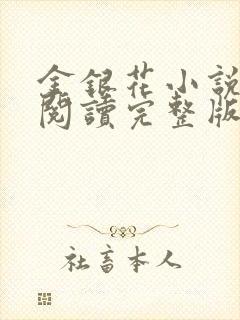 金銀花小說
閱讀完整版
社畜本人